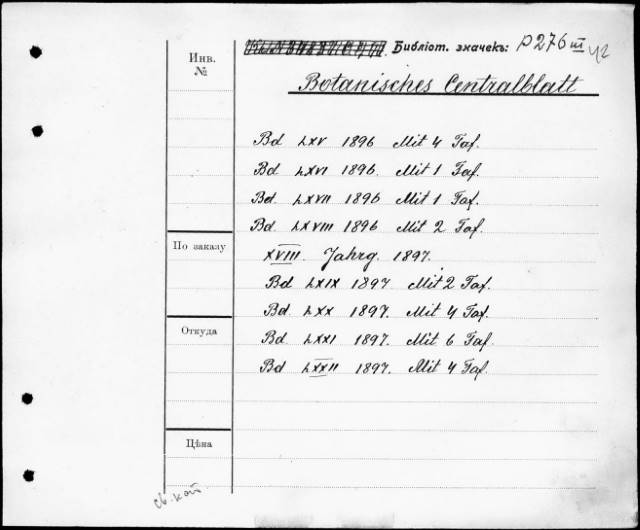 Инв.
№
Библіот. значекъ: P 276 III
Botanisches Centralblatt
Bd LXV 1896 Mit 4 Taf.
Bd LXVI 1896. Mit 1 Taf.
Bd. LXVII 1896 Mit 1 Taf.
Bd. LXVIII 1896 Mit 2 Taf.
По заказу
XVIII. Jahrg. 1897.
Bd LXIX 1897 Mit 2 Taf.
Bd. LXX 1897. Mit 4 Taf.
Откуда
Bd. LXXI 1897. Mit 6 Taf.
Bd LXXII 1897. Mit 4 Taf.
Цѣна